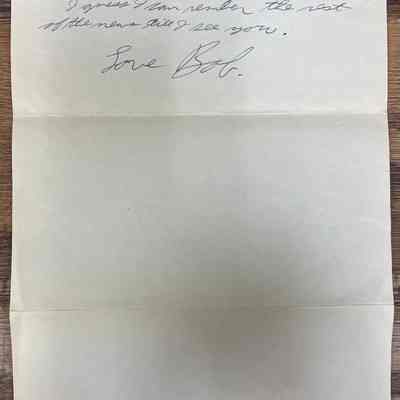 I guess I can rember the rest
of the news till I see you.
Love Bob.